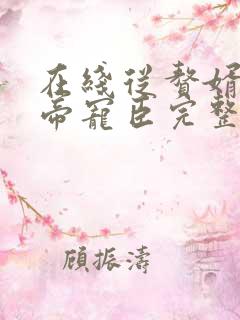 在綫從贅婿
帝寵臣完整
顧振濤